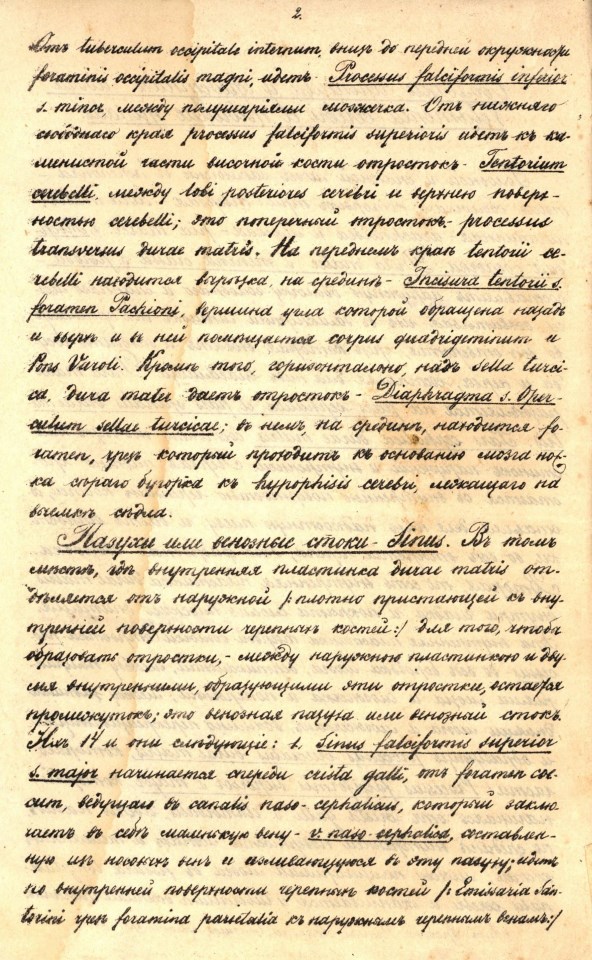 2.
Отъ tuberculum occipitale internum, внизъ до передней окружности
foraminis occipitalis magni, идетъ - Processus falciformis inferior
s. minor, между полушаріями мозжечка. Отъ нижняго
свободнаго края processus falciformis superioris идетъ къ ка-
менистой части височной кости отростокъ - Tentorium
cerebelli, между lobi posteriores cerebri и верхнею поверх-
ностью cerebelli; это поперечный отростокъ - processus
transversus durae matris. На переднемъ краѣ tentorii ce-
rebelli находится вырѣзка, на срединѣ - Incisura tentorii s.
foramen Pachioni, вершина угла которой обращена назадъ
и вверхъ и въ ней помѣщается corpus quadrigeminum и
Pons Varoli. Кромѣ того, горизонтально, надъ sella turci-
ca, dura mater даетъ отростокъ - Diaphragma s. Oper-
culum sellae turcicae; въ немъ, на срединѣ, находится fo-
ramen, чрезъ который проходитъ къ основанію мозга нож-
ка сѣраго бугорка къ hypophisis cerebri, лежащаго на
выемкѣ сѣдла.
Пазухи или венозные стоки - Sinus. Въ томъ
мѣстѣ, гдѣ внутренняя пластинка durae matris от-
дѣляется отъ наружной /: плотно пристающей къ вну-
тренней поверхности черепныхъ костей :/ для того, чтобы
образовать отростки, - между наружною пластинкою и дву-
мя внутренними, образующими эти отростки, остается
промежутокъ; это венозная пазуха или венозный стокъ.
Ихъ 14 и они слѣдующіе: 1. Sinus falciformis superior
s. major начинается спереди crista galli, отъ foramen coe-
cum, ведущаго въ canalis naso-cephalicus, который заклю-
чаетъ въ себѣ маленькую вену - v. naso-cephalica, составлен-
ную изъ носовыхъ венъ и изливающуюся въ эту пазуху; идетъ
по внутренней поверхности черепныхъ костей /: Emissaria San-
torini чрезъ foramina parietalia къ наружнымъ черепнымъ венамъ :/